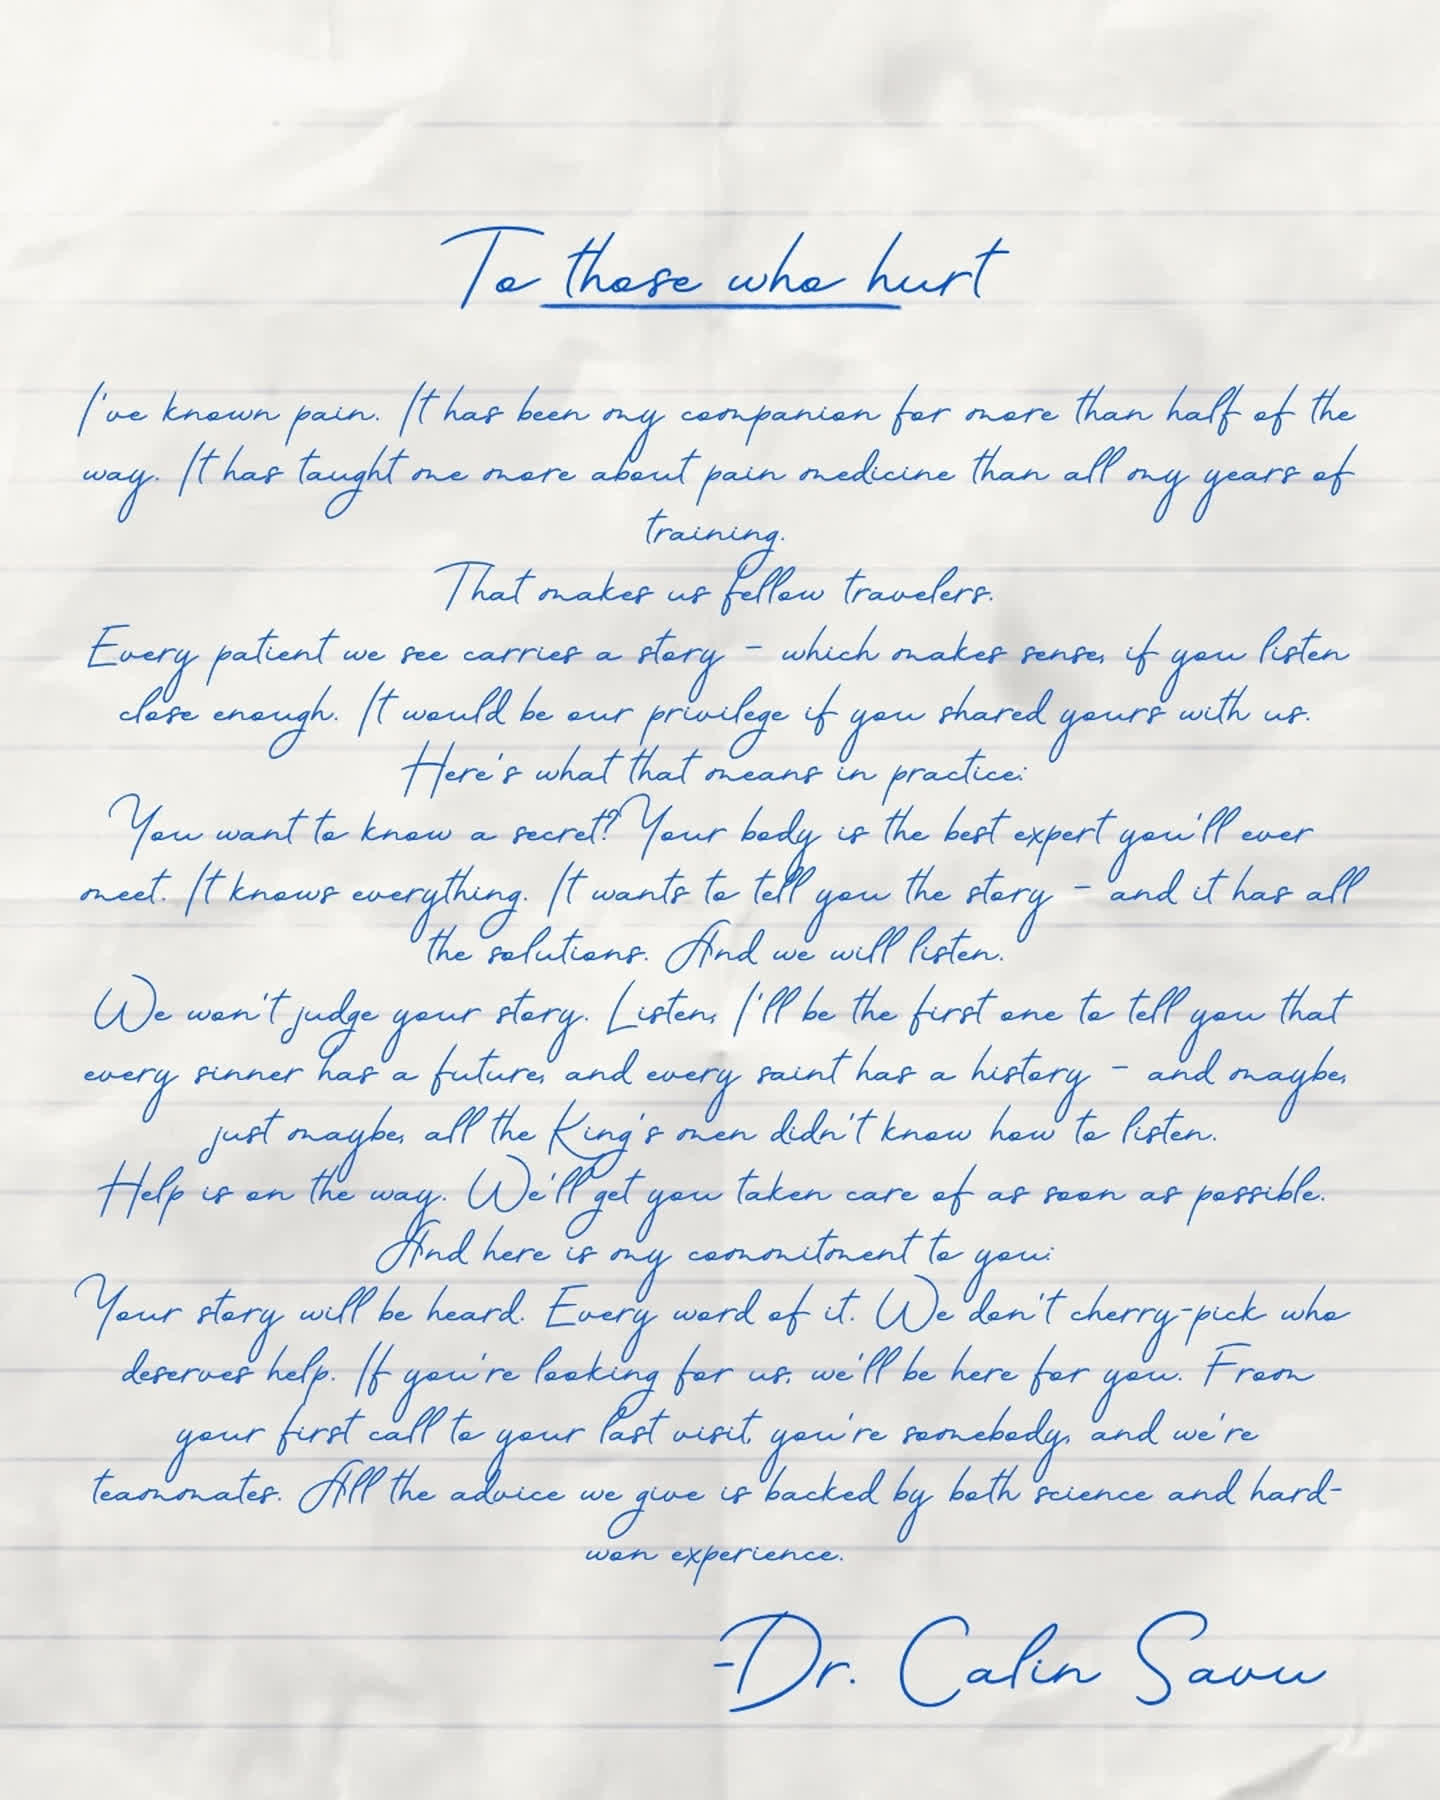 To those who hurt
I've known pain. It has been my companion for more than half of the
way. It has taught me more about pain medicine than all my years of
training.
That makes us fellow travelers.
Every patient we see carries a story - which makes sense, if you listen
close enough. It would be our privilege if you shared yours with us.
Here's what that means in practice:
You want to know a secret? Your body is the best expert you'll ever
meet. It knows everything. It wants to tell you the story - and it has all
the solutions. And we will listen.
We won't judge your story. Listen, I'll be the first one to tell you that
every sinner has a future, and every saint has a history - and maybe,
just maybe, all the King's men didn't know how to listen.
Help is on the way. We'll get you taken care of as soon as possible.
And here is my commitment to you:
Your story will be heard. Every word of it. We don't cherry-pick who
deserves help. If you're looking for us, we'll be here for you. From
your first call to your last visit, you're somebody, and we're
teammates. All the advice we give is backed by both science and hard-
won experience.
-Dr. Calin Savu